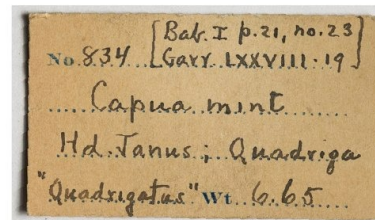 [Bab. I p.21, no.23
No. 834 Garr LXXVIII.19]
Capua mint
Hd. Janus; Quadriga
"Quadrigatus" Wt 6.65